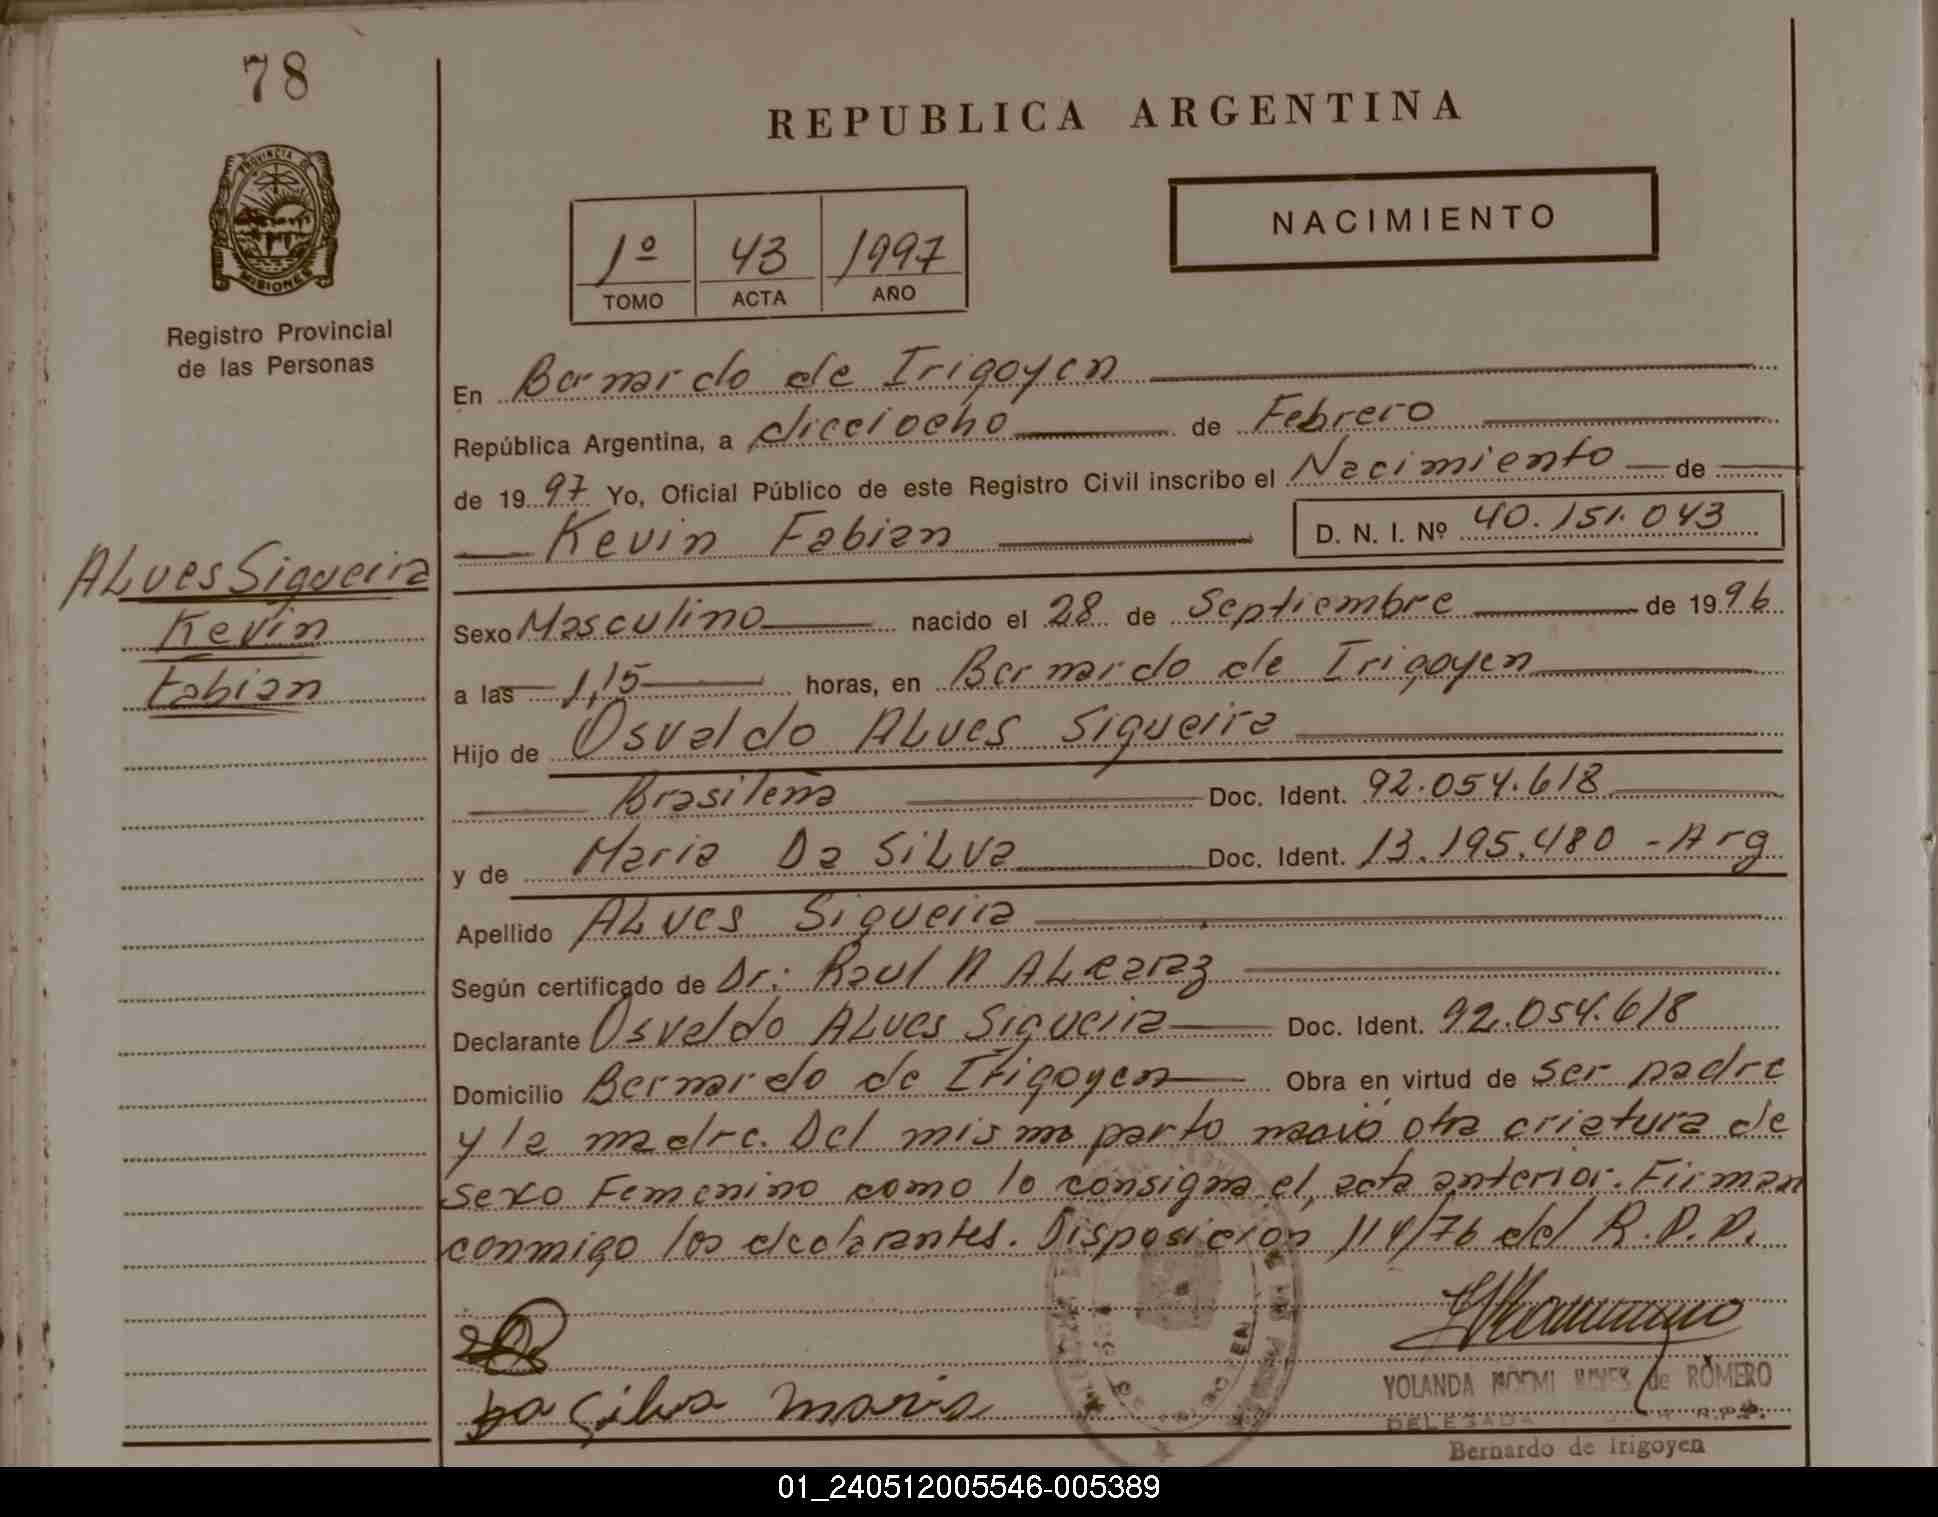 78
REPUBLICA ARGENTINA
PROVINCIA DE
MISIONES
Registro Provincial
de las Personas
1º 43 1997
TOMO ACTA AÑO
NACIMIENTO
En Bernardo de Irigoyen
República Argentina, a dicciocho de Febrero
de 1997 Yo, Oficial Público de este Registro Civil inscribo el Nacimiento de
Kevin Fabian D. N. I. Nº 40.151.043
ALves Siqueira
Kevin
Fabian
Sexo Masculino nacido el 28 de Septiembre de 1996
a las 1,15 horas, en Bernardo de Irigoyen
Hijo de Osvaldo ALves Siqueira
Brasileña Doc. Ident. 92.054.618
y de Maria Da SiLva Doc. Ident. 13.195.480 - Arg
Apellido ALves Siqueira
Según certificado de Dr: Raul A ALcaraz
Declarante Osvaldo ALves Siqueira Doc. Ident. 92.054.618
Domicilio Bernardo de Irigoyen Obra en virtud de ser padre
y la madre. Del mismo parto nació otra criatura de
sexo Femenino como lo consigna el acta anterior. Firman
conmigo los declarantes. Disposición 114/76 del R.P.P.
Da Silva Maria
YOLANDA NOEMI de ROMERO
DELEGADA R.P.P.
Bernardo de Irigoyen
01_240512005546-005389